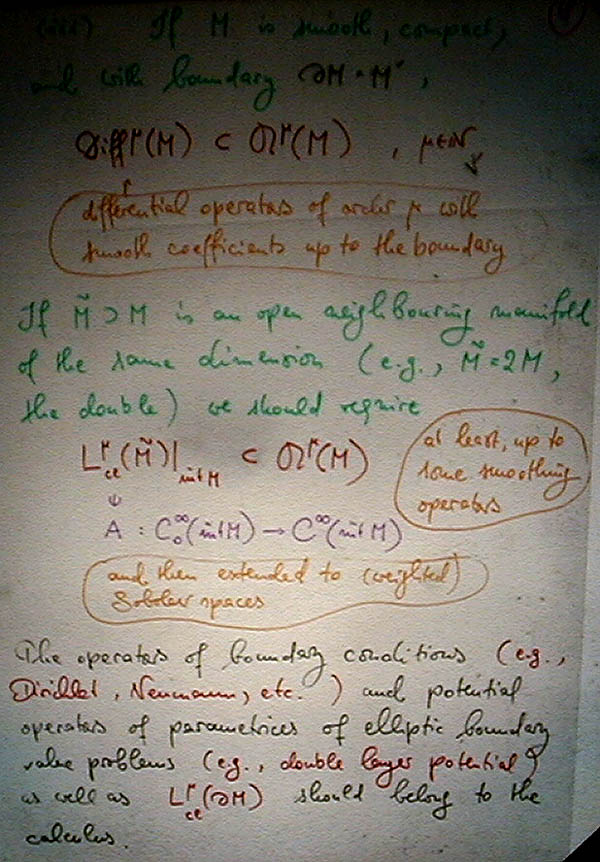 (iii) If M is smooth, compact,
and with boundary ∂M = M',
Diff^μ(M) ⊂ 𝔄^μ(M) , μ∈ℕ
differential operators of order μ with
smooth coefficients up to the boundary
If M̃ ⊃ M is an open neighbouring manifold
of the same dimension (e.g., M̃ = 2M,
the double) we should require
L^μ_cl(M̃)|_int M ⊂ 𝔄^μ(M)
at least, up to
some smoothing
operators
A : C^∞_0(int M) → C^∞(int M)
and then extended to (weighted)
Sobolev spaces
The operators of boundary conditions (e.g.,
Dirichlet, Neumann, etc.) and potential
operators of parametrices of elliptic boundary
value problems (e.g., double layer potential)
as well as L^μ_cl(∂M) should belong to the
calculus.